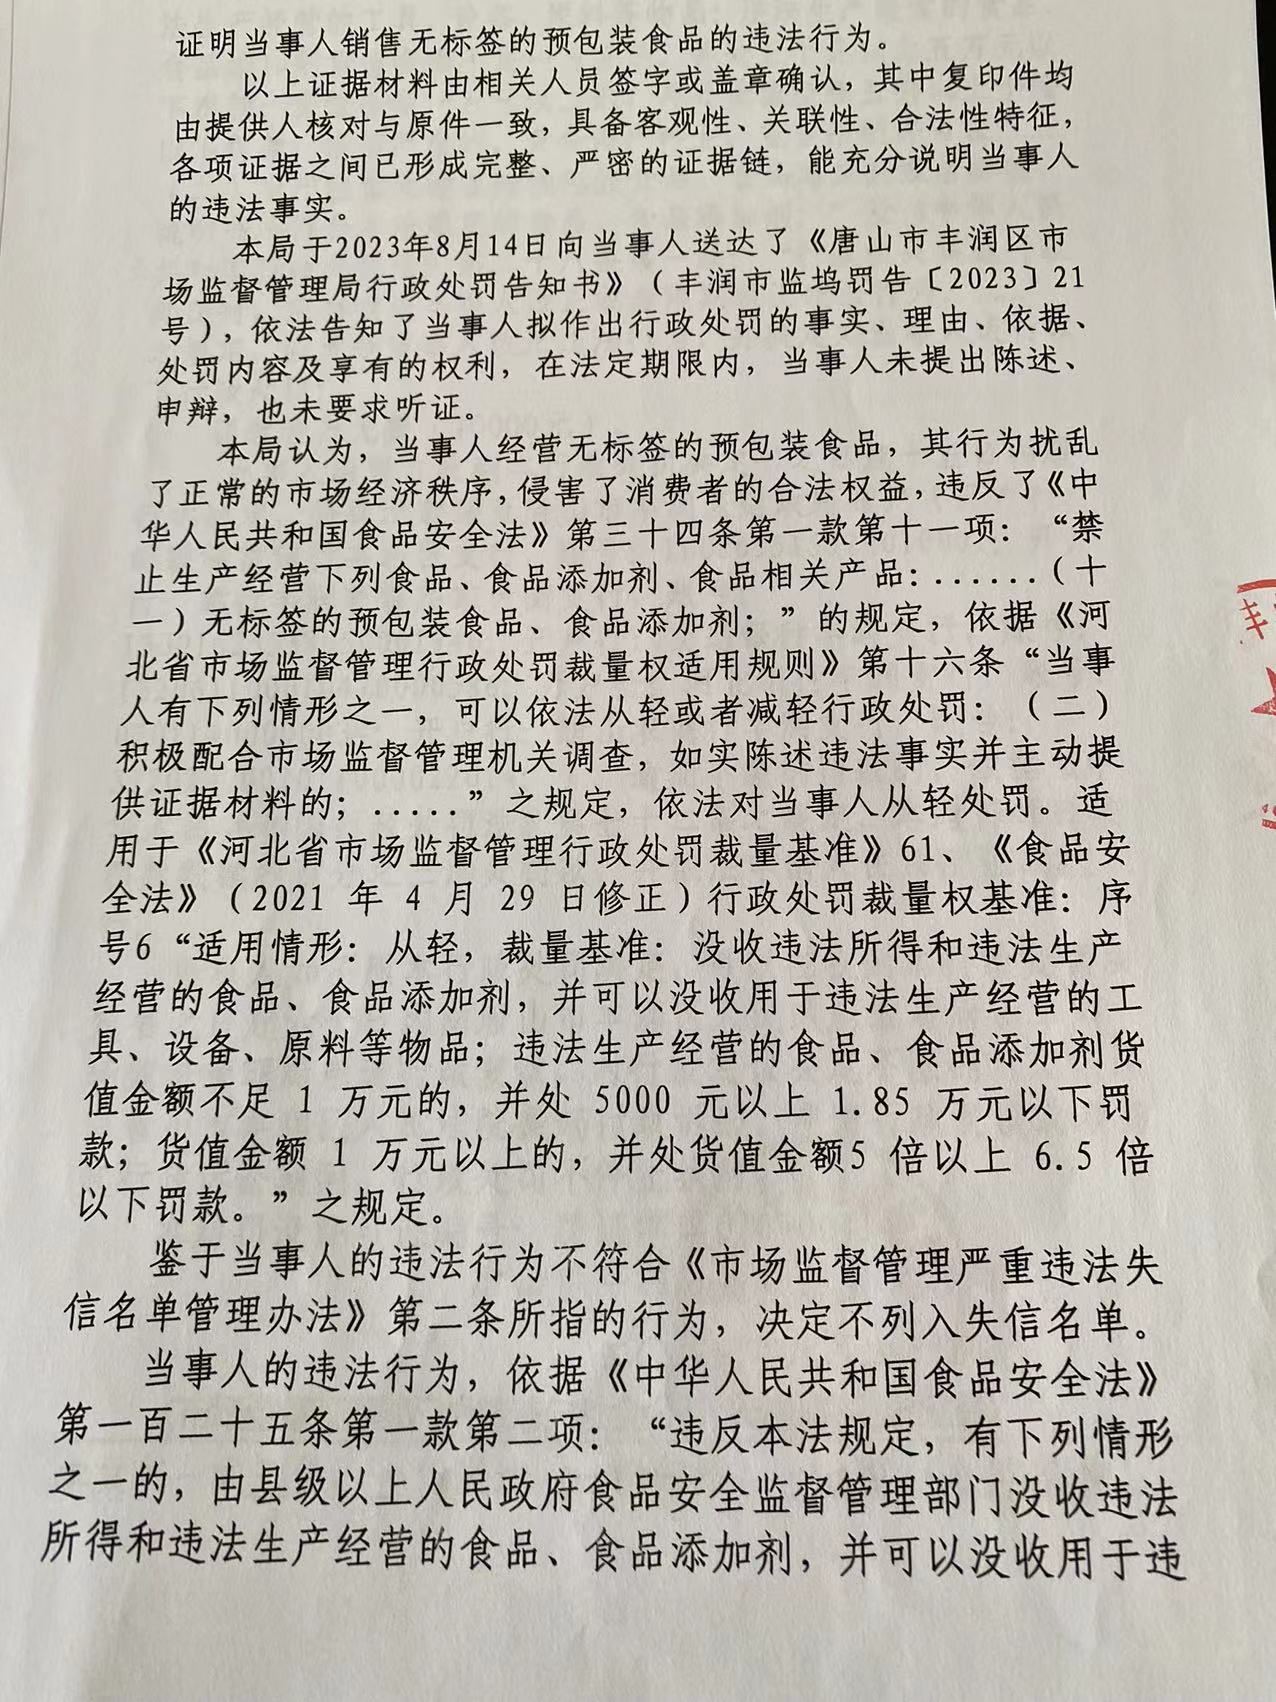 证明当事人销售无标签的预包装食品的违法行为。
以上证据材料由相关人员签字或盖章确认，其中复印件均
由提供人核对与原件一致，具备客观性、关联性、合法性特征，
各项证据之间已形成完整、严密的证据链，能充分说明当事人
的违法事实。
本局于2023年8月14日向当事人送达了《唐山市丰润区市
场监督管理局行政处罚告知书》（丰润市监坞罚告〔2023〕21
号），依法告知了当事人拟作出行政处罚的事实、理由、依据、
处罚内容及享有的权利，在法定期限内，当事人未提出陈述、
申辩，也未要求听证。
本局认为，当事人经营无标签的预包装食品，其行为扰乱
了正常的市场经济秩序，侵害了消费者的合法权益，违反了《中
华人民共和国食品安全法》第三十四条第一款第十一项：“禁
止生产经营下列食品、食品添加剂、食品相关产品：......（十
一）无标签的预包装食品、食品添加剂；”的规定，依据《河
北省市场监督管理行政处罚裁量权适用规则》第十六条“当事
人有下列情形之一，可以依法从轻或者减轻行政处罚：（二）
积极配合市场监督管理机关调查，如实陈述违法事实并主动提
供证据材料的；.....”之规定，依法对当事人从轻处罚。适
用于《河北省市场监督管理行政处罚裁量基准》61、《食品安
全法》（2021 年 4 月 29 日修正）行政处罚裁量权基准：序
号6“适用情形：从轻，裁量基准：没收违法所得和违法生产
经营的食品、食品添加剂，并可以没收用于违法生产经营的工
具、设备、原料等物品；违法生产经营的食品、食品添加剂货
值金额不足 1 万元的，并处 5000 元以上 1.85 万元以下罚
款；货值金额 1 万元以上的，并处货值金额5 倍以上 6.5 倍
以下罚款。”之规定。
鉴于当事人的违法行为不符合《市场监督管理严重违法失
信名单管理办法》第二条所指的行为，决定不列入失信名单。
当事人的违法行为，依据《中华人民共和国食品安全法》
第一百二十五条第一款第二项：“违反本法规定，有下列情形
之一的，由县级以上人民政府食品安全监督管理部门没收违法
所得和违法生产经营的食品、食品添加剂，并可以没收用于违
丰